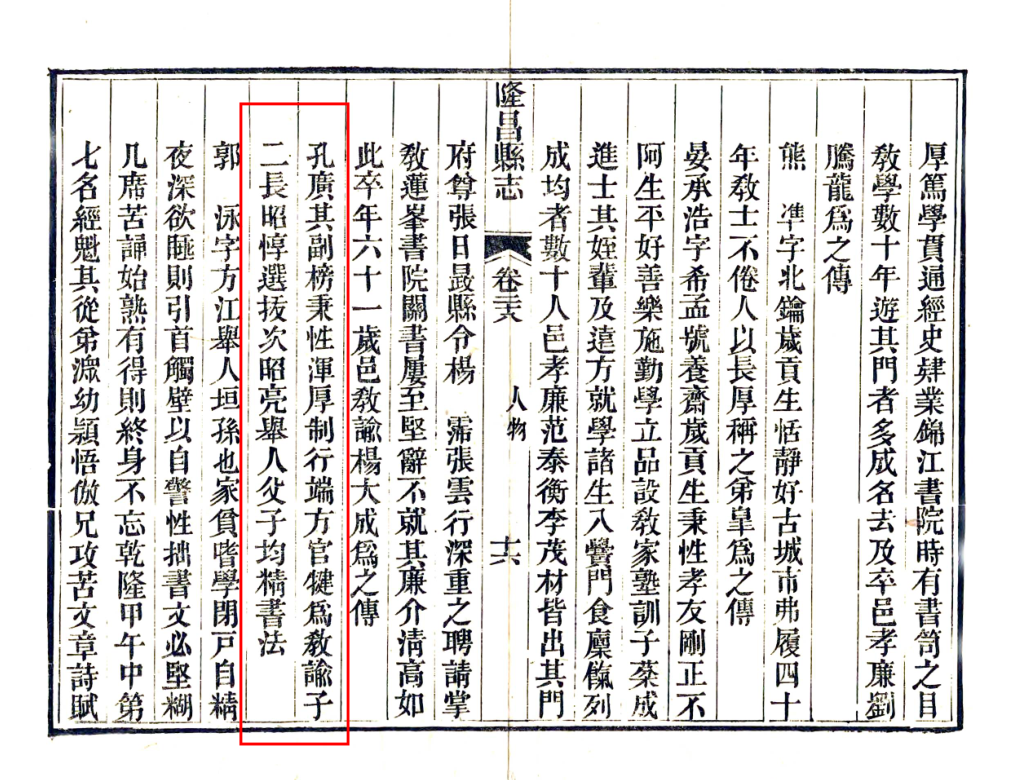 厚篤學貫通經史肄業錦江書院時有書笥之目
教學數十年遊其門者多成名去及卒邑孝廉劉
騰龍爲之傳
熊　準字北鑰歲貢生恬靜好古城市弗履四十
年教士不倦人以長厚稱之弟皇爲之傳
晏承浩字希孟號養齋歲貢生秉性孝友剛正不
阿生平好善樂施勤學立品設教家塾訓子棻成
進士其姪輩及遠方就學諸生入黌門食廩餼列
成均者數十人邑孝廉范泰衡李茂材皆出其門
隆昌縣志　卷　人物　十六
府尊張日晸縣令楊　霈張雲行深重之聘請掌
教蓮峯書院關書屢至堅辭不就其廉介清高如
此卒年六十一歲邑教諭楊大成爲之傳
孔廣其副榜秉性渾厚制行端方官犍爲教諭子
二長昭惇選拔次昭亮舉人父子均精書法
郭　泳字方江舉人垣孫也家貧嗜學閉戸自精
夜深欲睡則引首觸壁以自警性拙書文必堅糊
几席苦誦始熟有得則終身不忘乾隆甲午中第
七名經魁其從弟濴幼穎悟倣兄攻苦文章詩賦